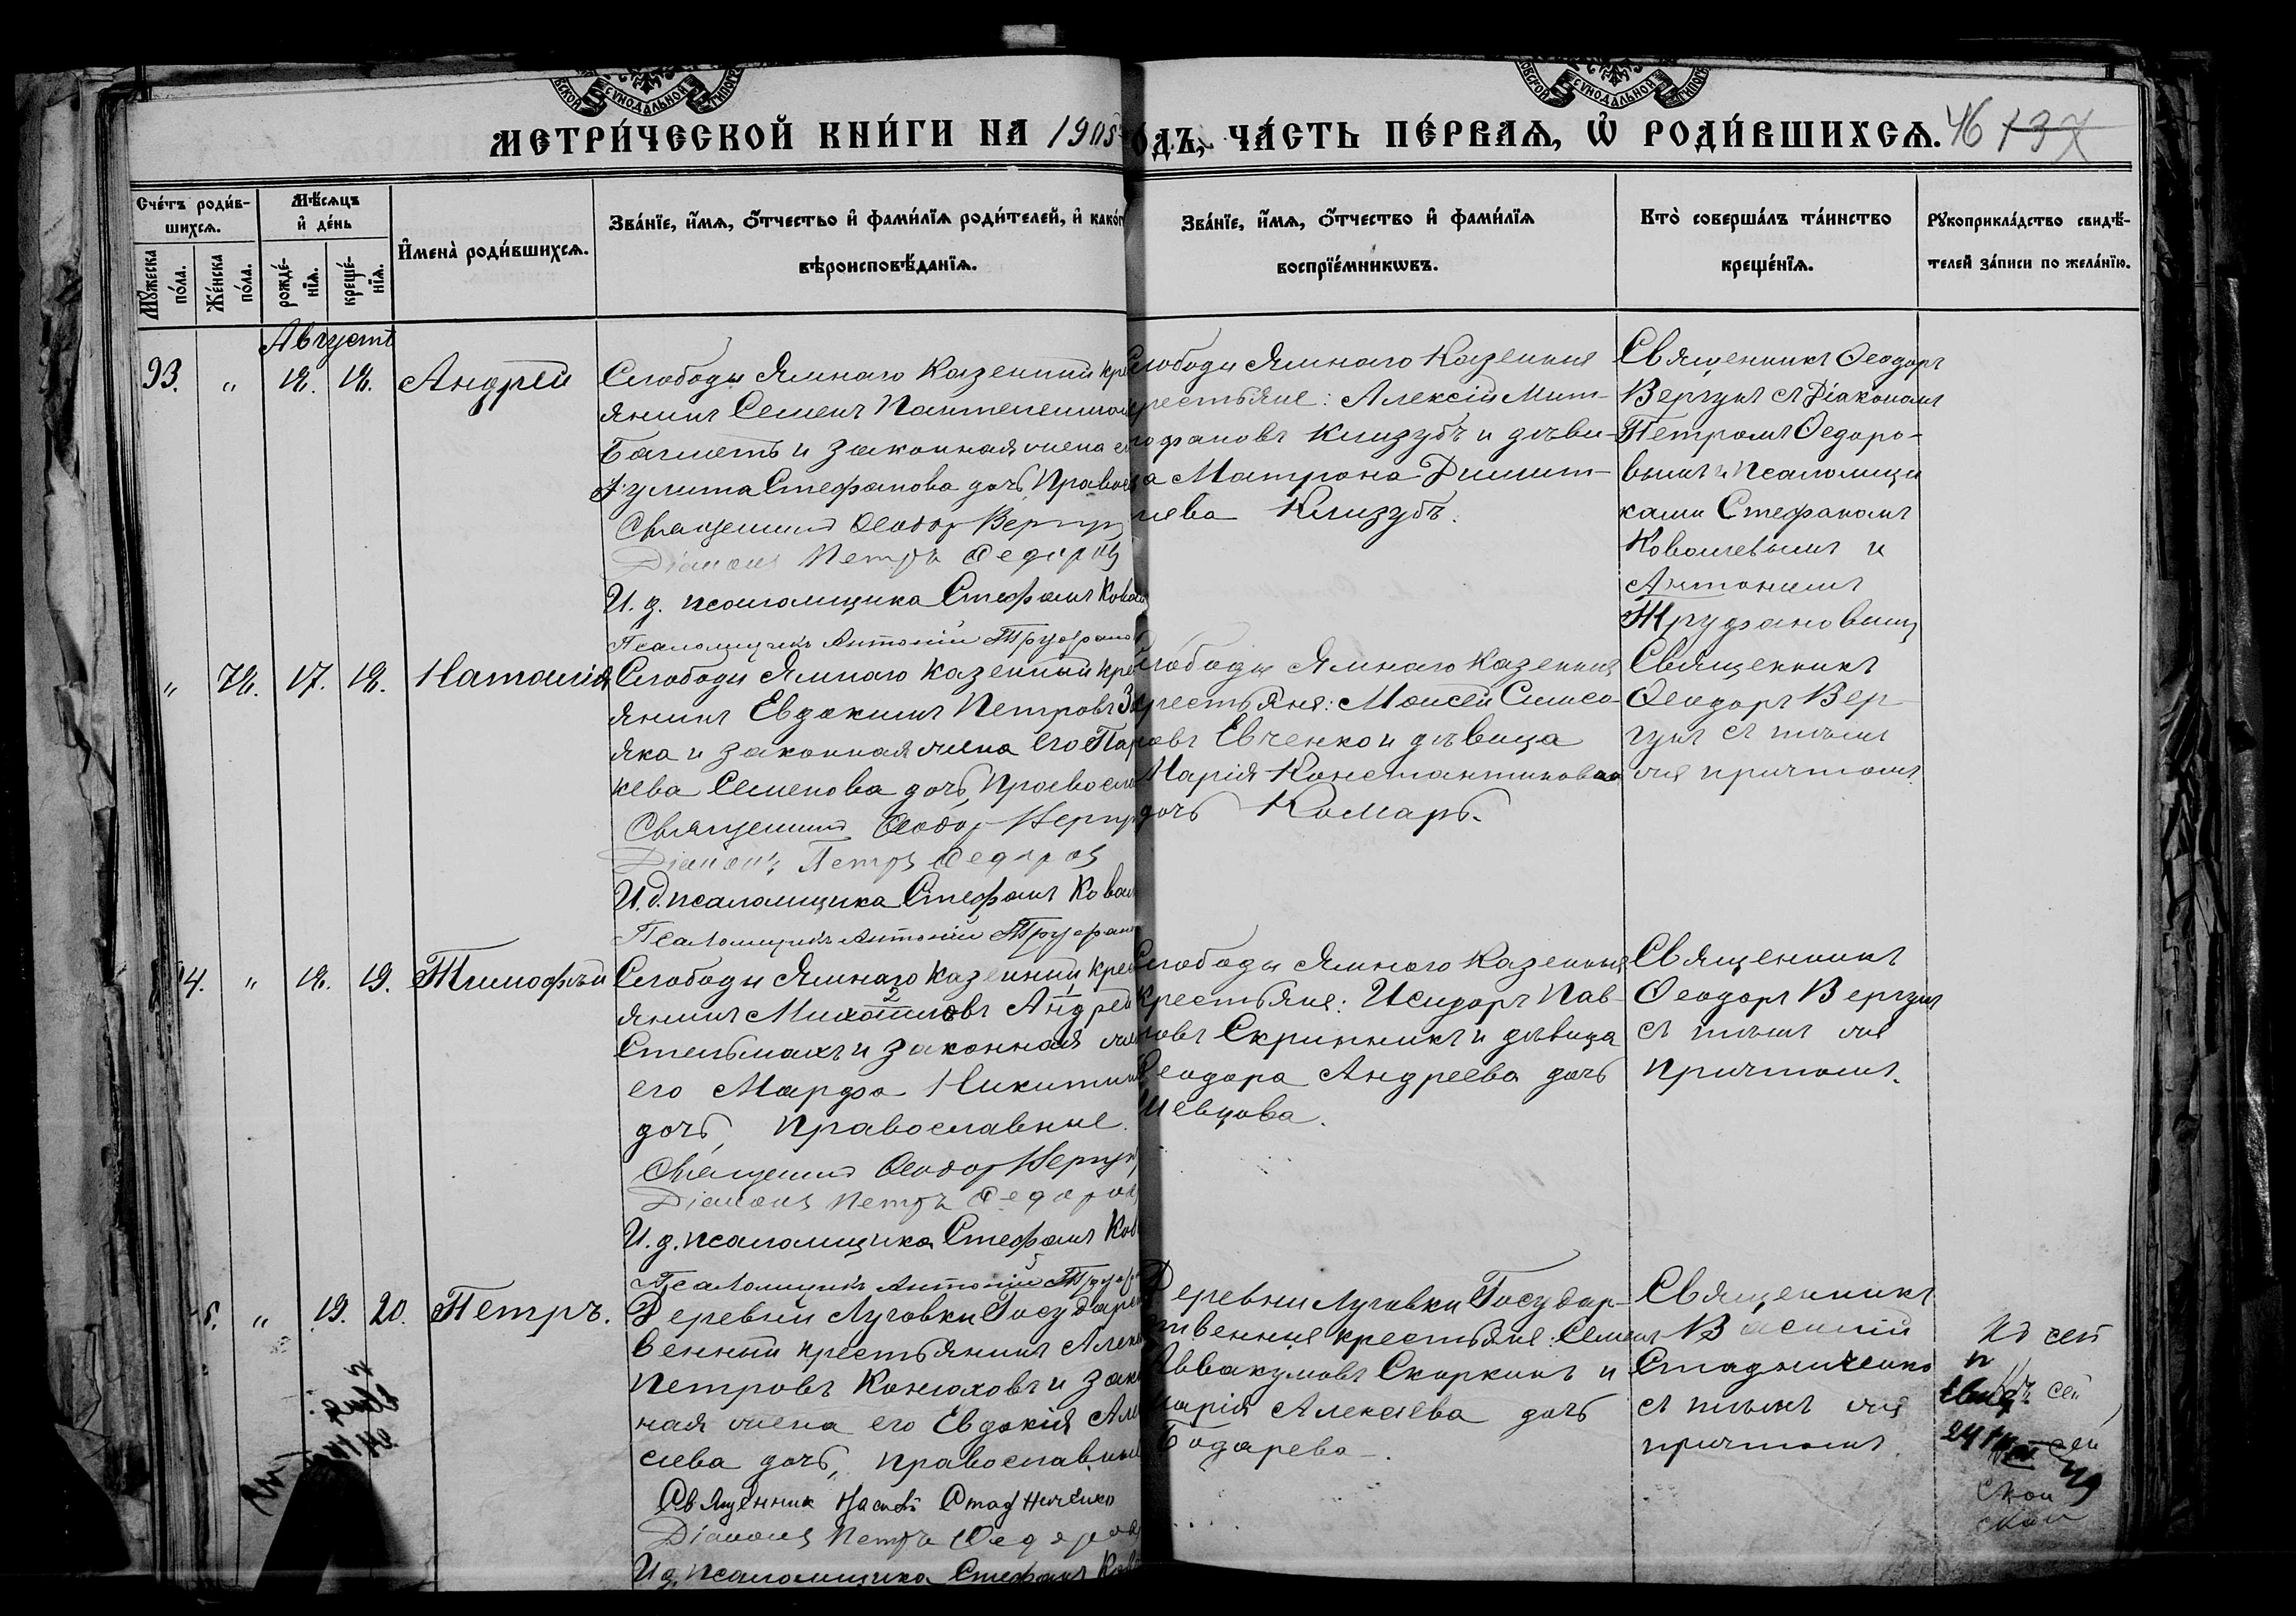 МЕТРИ́ЧЕСКОЙ КНИ́ГИ НА 1905
ОДЪ, ЧА́СТЬ ПЕ́РВАѦ, Ѡ РОДИ́ВШИХСѦ.
46 137
Сче́тъ роди́в-
шихсѧ.
Мꙋ́жеска по́ла.
Же́нска по́ла.
Мѣ́сѧцъ
и҆ де́нь
рожде́-
нїѧ.
креще́-
нїѧ.
И҆мена̀ роди́вшихсѧ.
Зва́нїе, и҆́мѧ, ѻ҆́тчество и҆ фами́лїѧ роди́телей, и҆ како́г
вѣроисповѣ́данїѧ.
Зва́нїе, и҆́мѧ, ѻ҆́тчество и҆ фами́лїѧ
воспрїе́мникѡвъ.
Кто̀ соверша́лъ та́инство
креще́нїѧ.
Рꙋкоприкла́дство свидѣ́-
телей за́писи по жела́нїю.
Августъ
93. " 18. 18. Андрей
Слободы Ямнаго Казенный кре
янинъ Семенъ Пантелеимон
Багметъ и законная жена е
Іулита Стефанова дочь, Правосл
Священникъ Ѳеодоръ Вергун
Діаконъ Петръ Ѳедоров
И. д. псаломщика Стефанъ Ковал
Псаломщикъ Антоній Труфанов
Слободы Ямнаго Казенные
крестьяне: Алексій Мит-
рофановъ Клизубъ и дѣви-
ца Матрона Димит-
ріева Клизубъ.
Священникъ Ѳеодоръ
Вергунъ съ Діакономъ
Петромъ Ѳедоро-
вымъ и псаломщи
ками Стефаномъ
Ковалевымъ и
Антоніемъ
Труфановымъ
" 78. 17. 18. Наталія
Слободы Ямнаго Казенный кре
янинъ Евдокимъ Петровъ За
яка и законная жена его Пар
кева Семенова дочь, Правосла
Священникъ Ѳеодоръ Вергун
Діаконъ Петръ Ѳедоров
И. д. псаломщика Стефанъ Ковал
Псаломщикъ Антоній Труфан
Слободы Ямнаго Казенные
крестьяне: Моисей Симео-
новъ Евченко и дѣвица
Марія Константинова
дочь Комаръ.
Священникъ
Ѳеодоръ Вер-
гунъ съ тѣмъ
же причтомъ.
94. " 18. 19. Тимофѣй
Слободы Ямнаго Казенный крес
янинъ Михаиловъ Андрей
Стельмахъ и законная жен
его Марфа Никитин
дочь, Православные.
Священникъ Ѳеодоръ Вергун
Діаконъ Петръ Ѳедоров
И. д. псаломщика Стефанъ Ков
Псаломщикъ Антоній Труф
Слободы Ямнаго Казенные
Крестьяне: Исидоръ Пав-
ловъ Скринникъ и дѣвица
Ѳеодора Андреева дочь
Шевцова.
Священникъ
Ѳеодоръ Вергунъ
съ тѣмъ же
причтомъ.
5. " 19. 20. Петръ.
Деревни Луговки Государс
венный крестьянинъ Алекс
Петровъ Конюховъ и зако
ная жена его Евдокія Але
сѣева дочь, Православные
Священник Василій Стадниченко
Діаконъ Петръ Ѳедоров
И д. псаломщика Стефанъ Ков
Деревни Луговки Государ-
ственные крестьяне: Семенъ
Аввакумовъ Скоркинъ и
Марія Алексѣева дочь
Бодарева.
Священникъ
Василій
Стадниченко
съ тѣмъ же
причтомъ.